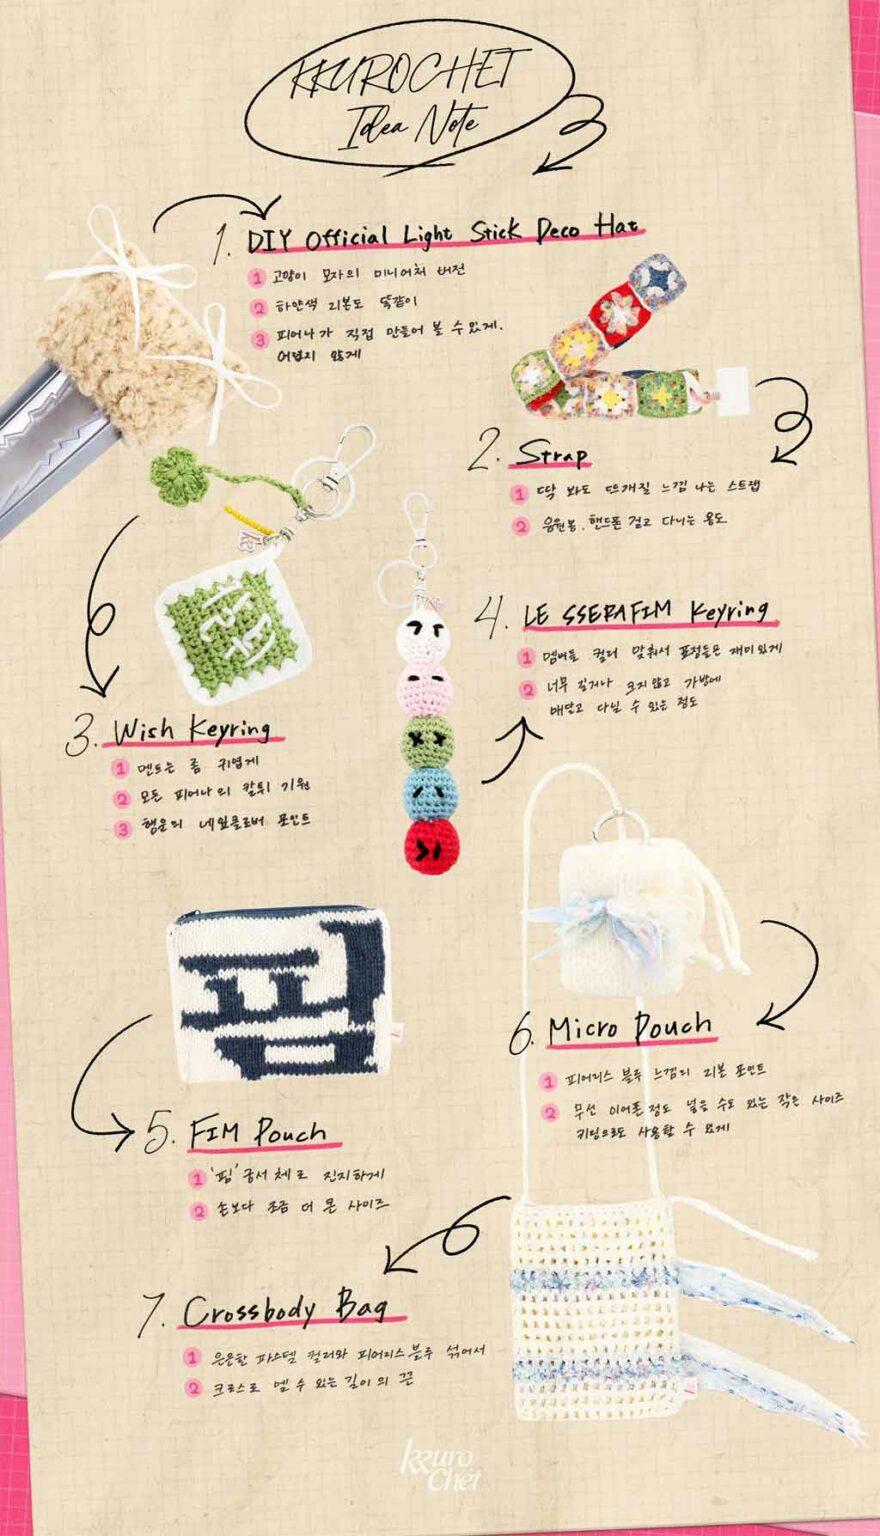 KKUROCHET
Idea Note
1. DIY Official Light Stick Deco Hat
1 고깔이 모자의 미니어처 버전
2 하얀색 리본도 똑같이
3 피어나가 직접 만들어 볼 수 있게.
어렵지 않게
2. Strap
1 딱 봐도 뜨개질 느낌 나는 스트랩
2 응원봉, 핸드폰 걸고 다니는 용도
3. Wish Keyring
1 멘트는 좀 귀엽게
2 모든 피어나의 칼퇴 기원
3 행운의 네잎클로버 포인트
4. LE SSERAFIM Keyring
1 멤버들 컬러 맞춰서 표정들은 재미있게
2 너무 길거나 크지 않고 가방에
매달고 다닐 수 있는 정도
핌
5. FIM Pouch
1 '핌' 궁서체로 진지하게
2 손보다 조금 더 큰 사이즈
6. Micro Pouch
1 피어리스 블루 느낌의 리본 포인트
2 무선 이어폰 정도 넣을 수도 있는 작은 사이즈
키링으로도 사용할 수 있게
7. Crossbody Bag
1 은은한 파스텔 컬러와 피어리스 블루 섞어서
2 크로스로 멜 수 있는 길이의 끈
kkuro
Chet